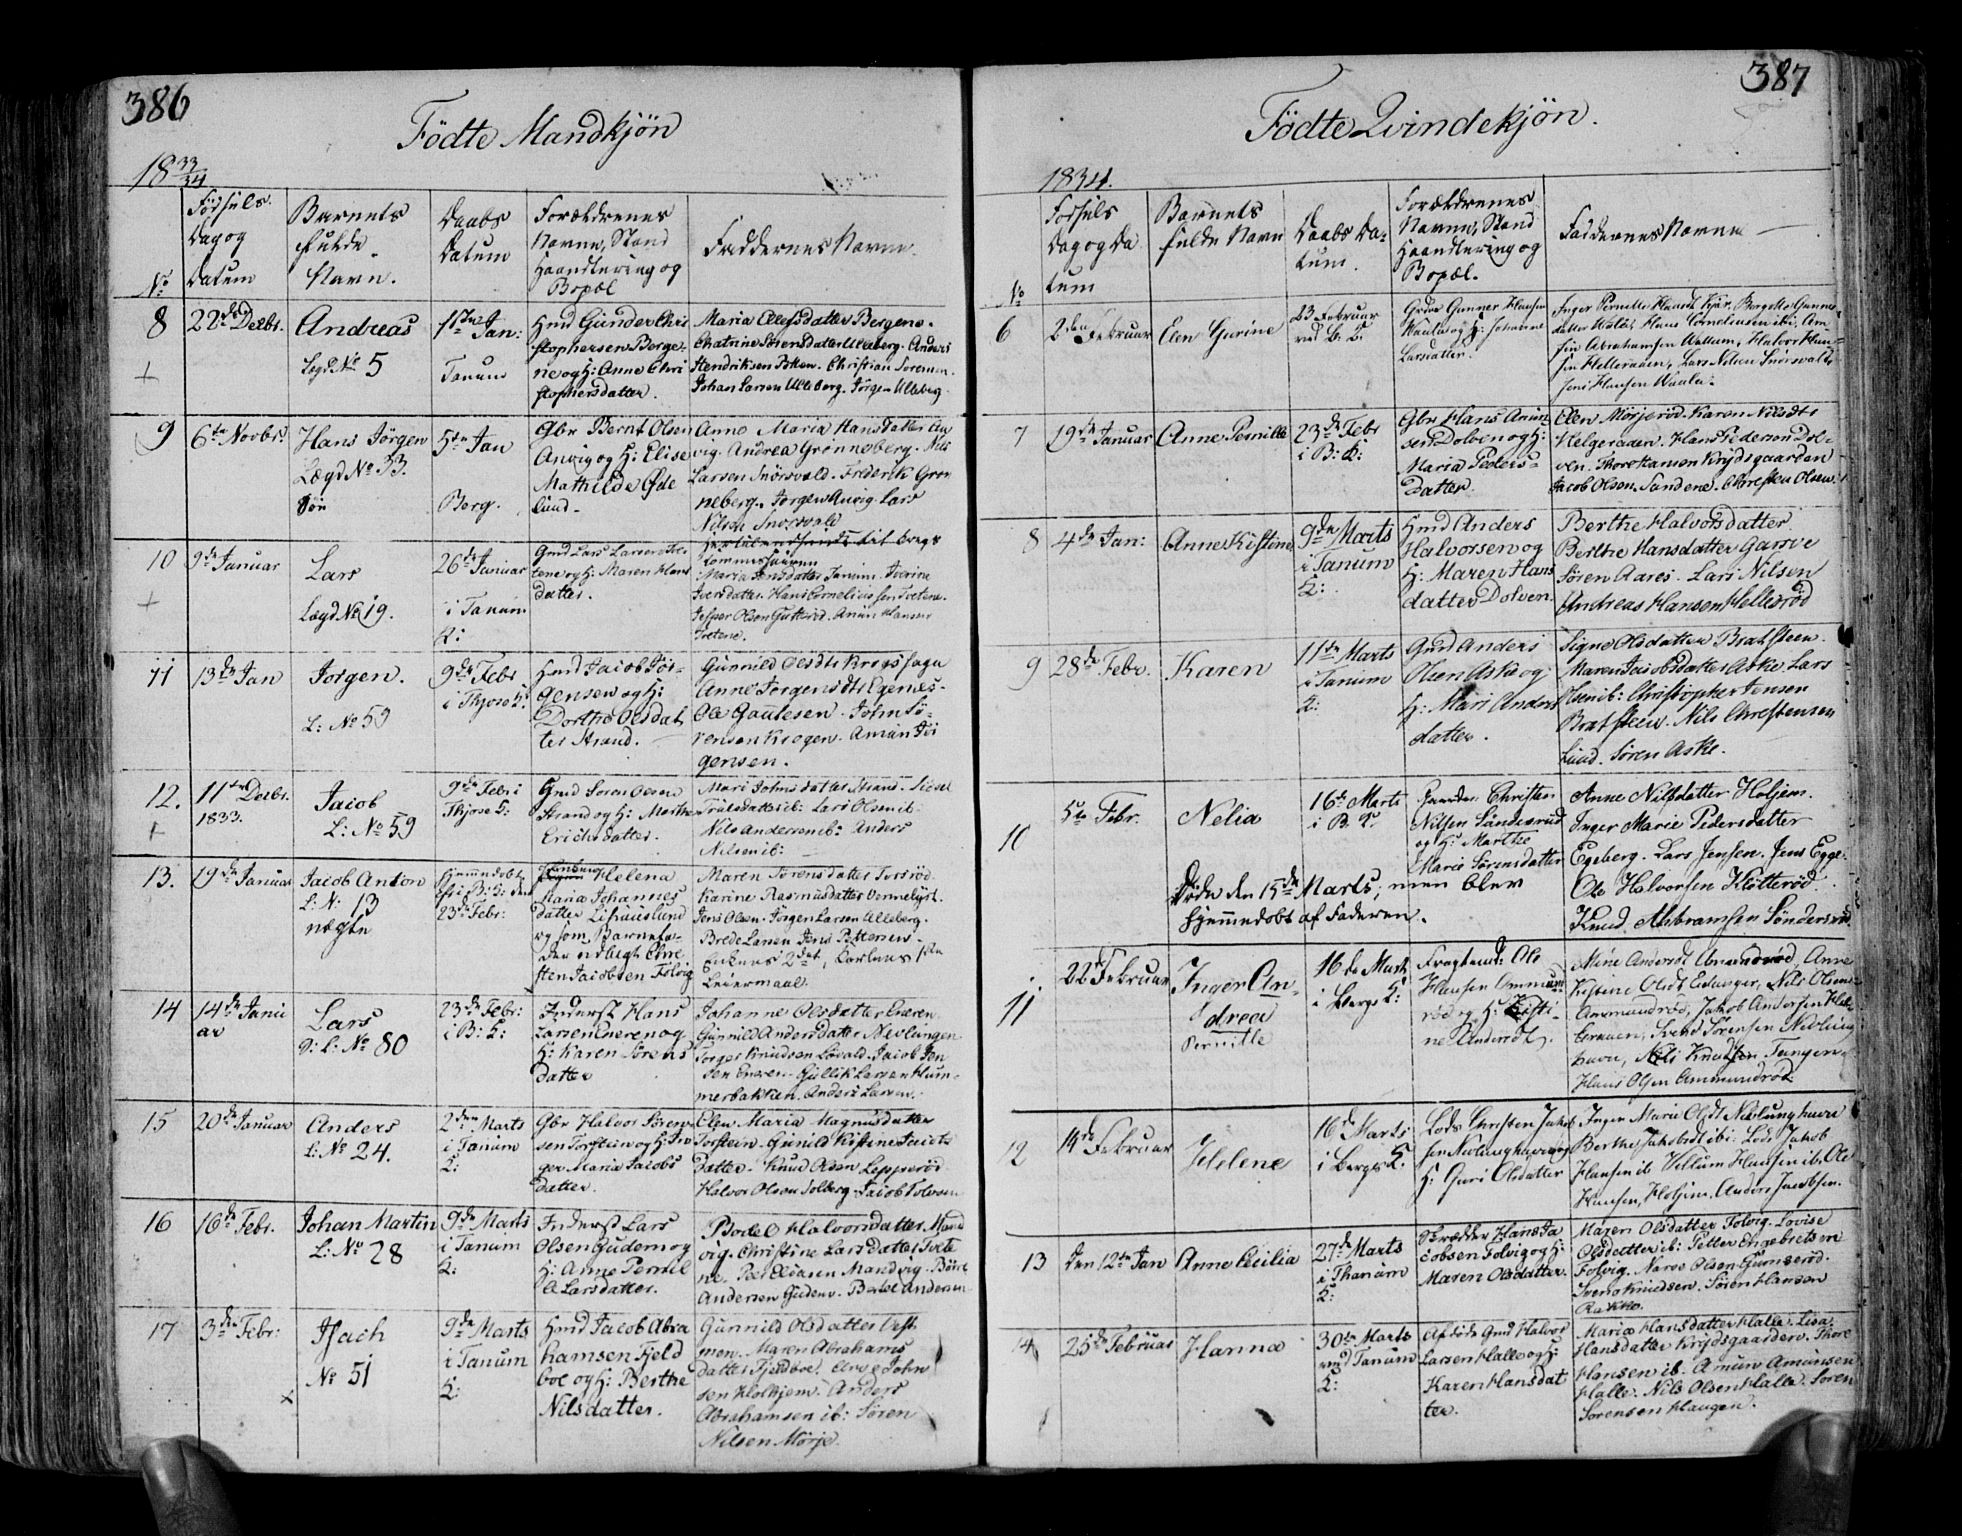 386
Fødte Mandkjøn
18 33/34
No
Fødsels
Dag og
Datum
Barnets
fulde
Navn.
Daabs
Datum
Forældrenes
Navne, Stand
Haandtering og
Bopæl
Faddernes Navne.
8
22de Decbr.
Andreas
Lægd No 5
1ste Jan:
Tanum
Hmd Gunder Chri
stophersen Berge-
ne og H: Anne Chri
stophersdatter.
Maria Olefsdatter Bergene.
Chatrine Sørensdatter Ulleberg. Anders
Hendriksen Christian Sørensen.
Johan Larsen Ulleberg. Jørgen Ulleberg
9
6te Novbr.
Hans Jørgen
Lægd No 33.
Søn
5te Jan
Berg.
Gbr Bernt Olsen
Anvig og H: Elise
Mathilde Øde
lund.
Anne Maria Hansdatter An
vig. Andrea Grønneberg. Nils
Larsen Snørsvald. Frederik Grøn
neberg. Jørgen Anvig. Lars
Nilsen Snorsvald
10
9de Januar
Lars
Lægd No 19.
26de Januar
i Tanum
K:
Gmd Lars Larsen Tve
tene og H: Maren Hans
datter.
Maria Jensdatter Tanum. Iverine
Iversdatter. Hans Corneliussen Tvetene.
Jesper Olsen Amun Hansen
Tvetene.
11
13de Jan
Jørgen.
L: No 59
9de Febr
i Thjose K:
Hmd Jacob Jør-
gensen og H:
Dorthe Olsdat
ter Strand.
Gunnild Olsdtr Krogshagn
Anne Jørgensdtr Egenes-
Ole Gautesen. John Sø-
rensen Krogen. Amun Jør
gensen.
12.
11te Decbr.
1833.
Jacob
L: No 59
9de Febr i
Thjose K:
Gmd Søren Olsen
Strand og H: Marthe
Erichsdatter.
Mari Johnsdatter Strand. Sissel
Trulsdatter ib: Lars Olsen ib.
Nils Andersen ib: Anders
Nilsen ib:
13.
19de Januar
Jacob Anton
L: N: 13
nægte
Hjemmedøbt
23de Febr:
Helena
Maria Johannes
datter
og som Barnefa-
der udlagt Chre
sten Jacobsen Folvig
Maren Sørensdatter Torsrød.
Karine Rasmusdatter Vennelyst.
Jens Olsen. Jørgen Larsen Ulleberg.
Brede Larsen Jens Pettersen.
Enkens 2det, Karlens 1ste
Leiermaal.
14
14de Janu
ar
Lars
D: L: No 80
23de Febr:
i B: K:
Inderst Hans
Larsen Eneren og
H: Karen Sørens
datter
Johanne Olsdatter Eneren.
Gunnild Andersdatter Nevlungen.
Jørgen Knudsen Løvald. Jacob Jen
sen Eneren. Gullik Larsen Hum-
merbakken. Anders Larsen.
15
20de Januar
Anders
L: No 24.
2den Marts
i Tanum
K:
Gbr Halvor Søren-
sen Torstein og H: In
ger Maria Jacobs
datter.
Elen Maria Magnusdatter
Torstein. Gunild Kistine Jacobs
datter. Knud Olsen Lepperød
Halvor Olsen Solberg. Jacob Tolvsen
16
16de Febr.
Johan Martin
L: No 28
9de Marts
i Tanum
K:
Inderst Lars
Olsen Gudem og
H: Anne Pernil
le Larsdatter.
Bodel Halvorsdatter Mand
vig. Christine Larsdatter Tvete
ne. Peer Eliasen Mandvig. Børre
Andersen Gudem. Bertel Andersen
17
3de Febr:
Isach
No 51
9de Marts
i Tanum
K:
Hmd Jacob Abra
hamsen Fjeld
boe og H: Berthe
Nilsdatter.
Gunnild Olsdatter
men. Maren Abrahams
datter Fjeldboe. Arve John
sen Holhjem. Anders
Abrahamsen ib: Søren
Nilsen Mørje.
387
Fødte Qvindekjøn.
1834.
No
Fødsels
Dag og Da
tum
Barnets
fulde Navn
Daabs Da-
tum.
Forældrenes
Navne, Stand
Haandtering og
Bopæl.
Faddernes Navne
6
2den Februar
Elen Gurine
23 Februar
ved B. K.
Gunner Hansen
Waale og H: Johanne
Larsdatter.
Inger Pernille Hansdt Borgitte Gunners
datter Hans Corneliusen ibi, Am
fin Abrahamsen Wallum, Halvor Han-
sen Helleraaen, Lars Nilsen Snørsvald
Jens Hansen Waale.
7
19de Januar
Anne Pernille
23de Febr
i B: K:
Gbr Hans Amun
sen Dolven og H:
Maria Peders-
datter.
Elen Mørjerød. Karen Nilsdtr
Helgeraaen. Hans Pederson Dol-
ven. Thore Hansen Krydsgaarden
Jacob Olsen Sandene. Chresten Olsen
8
4de Jan:
Anne Kistine
9de Marts
i Tanum
K:
Hmd Anders
Halvorsen og
H: Maren Hans
datter Dolven.
Berthe Halvorsdatter
Berthe Hansdatter Garsve
Søren Aares. Lars Nilsen
Andreas Hansen Hellerød
9
28de Febr.
Karen
11te Marts
i Tanum
K:
Gmd Anders
Olsen Aske og
H: Mari Anders
datter.
Signe Olsdatter Bratsteen.
Maren Jacobsdatter Aske Lars
Olsen ib: Christopher Jensen
Bratsteen. Nils Chrestensen
Lund. Søren Aske.
10
5te Febr.
Nelia
16de Marts
i B. K.
Christen
Nilsen Søndersrød
og H: Marthe
Marie Sørensdatter
Døde den 15de Marts, men blev
hjemmedøbt af Faderen.
Anne Nilsdatter Holjem.
Inger Marie Pedersdatter
Egeberg. Lars Jensen. Jens Egge-
Ole Halvorsen Kløtterød.
Knud Abramsen Søndersrød
11
22de Februar
Inger An-
drea
Pernille
16de Marts
i Bergs K:
Fragtemd: Ole
Hansen Ommun
rød og H: Kisti-
ne Andersdt.
Mine Andersdt Ommundrød, Anne
Kistine Olsdt Eidanger, Nils Olsen
Ommundrød, Jakob Andersen Hel-
geraaen, Svend Sørensen Nevlung-
havn, Nils Knudsen Tungen.
Hans Olsen Ommundrød.
12
14de Februar
Helene
16de Marts
i Bergs K:
Lods Christen Jakob
sen Nevlunghavn og
H: Guri Olsdatter
Inger Marie Olsdt Nevlunghavn
Berthe Jakobsdt ibi. Lods Jakob
Hansen ib. Villum Hansen ib, Ole
Hansen, Holjem, Anders Jacobsen.
13
Den 12te Jan
Anne Cecilia
27de Marts
i Thanum
K:
Skrædder Hans Ja
cobsen Folvig og H:
Maren Olsdatter.
Maren Olsdatter Folvig. Lovise
Olsdatter ib: Petter Engebretsen
Folvig. Narve Olsen Gumserød.
Svend Knudsen. Søren Hansen
Rakke.
14
25de Februar
Hanna
30te Marts
ved Tanum
K:
Afdøde Gmd Halvor
Larsen Halle og H:
Karen Hansdat
ter.
Maria Hansdatter Halle. Lisa
Hansdatter Krydsgaarden. Thore
Hansen ib: Amun Amunsen
Halle. Nils Olsen Halle. Søren
Sorensen Haugen.